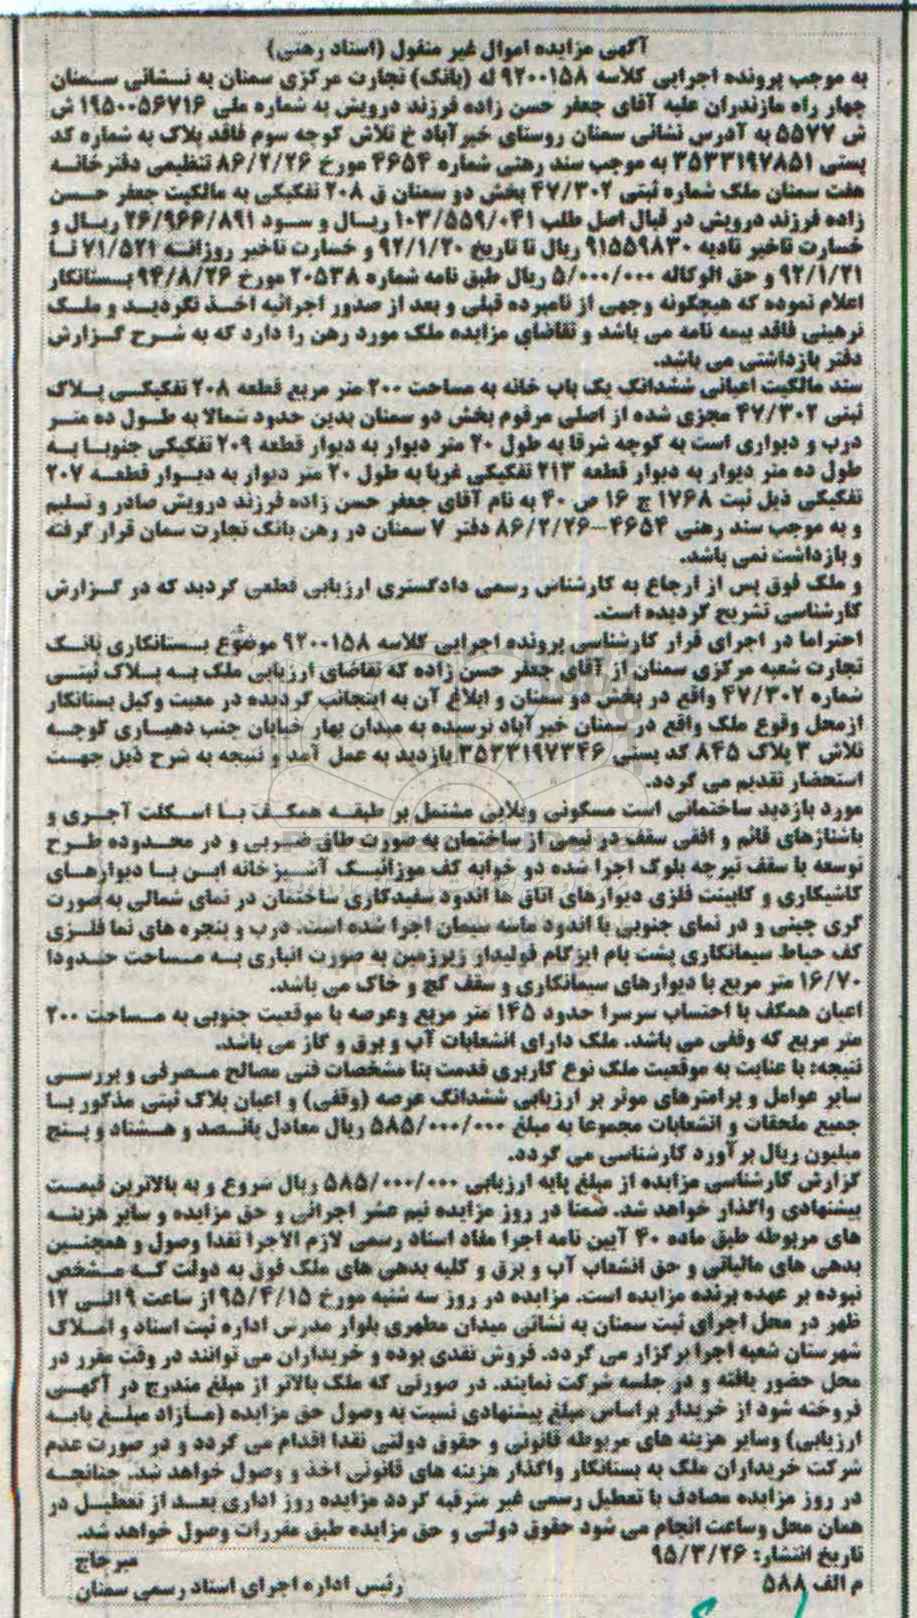 آگهی مزایده اموال غیر منقول (اسناد رهنی)
به موجب پرونده اجرایی کلاسه ۹۲۰۰۱۵۸ له (بانک) تجارت مرکزی سمنان به نشانی سمنان
چهار راه مازندران علیه آقای جعفر حسن زاده فرزند درویش به شماره ملی ۱۹۵۰۰۵۶۷۱۶ ش
ش ۵۵۷۷ به آدرس نشانی سمنان روستای خیرآباد خ تلاش کوچه سوم فاقد پلاک به شماره کد
پستی ۳۵۳۳۱۹۷۸۵۱ به موجب سند رهنی شماره ۴۶۵۴ مورخ ۸۶/۲/۲۶ تنظیمی دفترخانه
هفت سمنان ملک شماره ثبتی ۴۷/۳۰۲ بخش دو سمنان ق ۲۰۸ تفکیکی به مالکیت جعفر حسن
زاده فرزند درویش در قبال اصل طلب ۱۰۳/۵۵۹/۰۴۱ ریال و سود ۲۶/۹۶۶/۸۹۱ ریال و
خسارت تاخیر تادیه ۹۱۵۵۹۸۳۰ ریال تا تاریخ ۹۲/۱/۲۰ و خسارت تاخیر روزانه ۷۱/۵۲۱ تا
۹۲/۱/۲۱ و حق الوکاله ۵/۰۰۰/۰۰۰ ریال طبق نامه شماره ۲۰۵۳۸ مورخ ۹۴/۸/۲۶ بستانکار
اعلام نموده که هیچگونه وجهی از نامبرده قبلی و بعد از صدور اجرائیه اخذ نگردید و ملک
ترهینی فاقد بیمه نامه می باشد و تقاضای مزایده ملک مورد رهن را دارد که به شرح گزارش
دفتر بازداشتی می باشد.
سند مالکیت اعیانی ششدانگ یک باب خانه به مساحت ۲۰۰ متر مربع قطعه ۲۰۸ تفکیکی پلاک
ثبتی ۴۷/۳۰۲ مجزی شده از اصلی مرقوم بخش دو سمنان بدین حدود شمالا به طول ده متر
درب و دیواری است به کوچه شرقا به طول ۲۰ متر دیوار به دیوار قطعه ۲۰۹ تفکیکی جنوبا به
طول ده متر دیوار به دیوار قطعه ۲۱۳ تفکیکی غربا به طول ۲۰ متر دیوار به دیوار قطعه ۲۰۷
تفکیکی ذیل ثبت ۱۷۶۸ ج ۱۶ ص ۴۰ به نام آقای جعفر حسن زاده فرزند درویش صادر و تسلیم
و به موجب سند رهنی ۴۶۵۴-۸۶/۲/۲۶ دفتر ۷ سمنان در رهن بانک تجارت سمان قرار گرفته
و بازداشت نمی باشد.
و ملک فوق پس از ارجاع به کارشناس رسمی دادگستری ارزیابی قطعی گردید که در گزارش
کارشناسی تشریح گردیده است.
احتراما در اجرای قرار کارشناسی پرونده اجرایی کلاسه ۹۲۰۰۱۵۸ موضوع بستانکاری بانک
تجارت شعبه مرکزی سمنان از آقای جعفر حسن زاده که تقاضای ارزیابی ملک به پلاک ثبتی
شماره ۴۷/۳۰۲ واقع در بخش دو سمنان و ابلاغ آن به اینجانب گردیده در معیت وکیل بستانکار
ازمحل وقوع ملک واقع در سمنان خیر آباد نرسیده به میدان بهار خیابان جنب دهیاری کوچه
تلاش ۳ پلاک ۸۴۵ کد پستی ۳۵۳۳۱۹۷۳۴۶ بازدید به عمل آمد و نتیجه به شرح ذیل جهت
استحضار تقدیم می گردد.
مورد بازدید ساختمانی است مسکونی ویلایی مشتمل بر طبقه همکف با اسکلت آجری و
باشناژهای قائم و افقی سقف در نیمی از ساختمان به صورت طاق ضربی و در محدوده طرح
توسعه با سقف تیرچه بلوک اجرا شده دو خوابه کف موزائیک آشپزخانه اپن با دیوارهای
کاشیکاری و کابینت فلزی دیوارهای اتاق ها اندود سفیدکاری ساختمان در نمای شمالی به صورت
گری چینی و در نمای جنوبی با اندود ماسه سیمان اجرا شده است. درب و پنجره های نما فلزی
کف حیاط سیمانکاری پشت بام ایزگام فولیدار زیرزمین به صورت انباری به مساحت حدودا
۱۶/۷۰ متر مربع با دیوارهای سیمانکاری و سقف گچ و خاک می باشد.
اعیان همکف با احتساب سرسرا حدود ۱۴۵ متر مربع وعرصه با موقعیت جنوبی به مساحت ۲۰۰
متر مربع که وقفی می باشد. ملک دارای انشعابات آب و برق و گاز می باشد.
نتیجه: با عنایت به موقعیت ملک نوع کاربری قدمت بنا مشخصات فنی مصالح مصرفی و بررسی
سایر عوامل و پرامترهای موثر بر ارزیابی ششدانگ عرصه (وقفی) و اعیان پلاک ثبتی مذکور با
جمیع ملحقات و انشعابات مجموعا به مبلغ ۵۸۵/۰۰۰/۰۰۰ ریال معادل پانصد و هشتاد و پنج
میلیون ریال بر آورد کارشناسی می گردد.
گزارش کارشناسی مزایده از مبلغ پایه ارزیابی ۵۸۵/۰۰۰/۰۰۰ ریال شروع و به بالاترین قیمت
پیشنهادی واگذار خواهد شد. ضمنا در روز مزایده نیم عشر اجرائی و حق مزایده و سایر هزینه
های مربوطه طبق ماده ۴۰ آیین نامه اجرا مفاد اسناد رسمی لازم الاجرا نقدا وصول و همچنین
بدهی های مالیاتی و حق انشعاب آب و برق و کلیه بدهی های ملک فوق به دولت که مشخص
نبوده بر عهده برنده مزایده است. مزایده در روز سه شنبه مورخ ۹۵/۴/۱۵ از ساعت ۹ الی ۱۲
ظهر در محل اجرای ثبت سمنان به نشانی میدان مطهری بلوار مدرس اداره ثبت اسناد و املاک
شهرستان شعبه اجرا برگزار می گردد. فروش نقدی بوده و خریداران می توانند در وقت مقرر در
محل حضور یافته و در جلسه شرکت نمایند. در صورتی که ملک بالاتر از مبلغ مندرج در آگهی
فروخته شود از خریدار براساس مبلغ پیشنهادی نسبت به وصول حق مزایده (مازاد مبلغ پایه
ارزیابی) وسایر هزینه های مربوطه قانونی و حقوق دولتی نقدا اقدام می گردد و در صورت عدم
شرکت خریداران ملک به بستانکار واگذار هزینه های قانونی اخذ و وصول خواهد شد. چنانچه
در روز مزایده مصادف با تعطیل رسمی غیر مترقبه گردد مزایده روز اداری بعد از تعطیل در
همان محل وساعت انجام می شود حقوق دولتی و حق مزایده طبق مقررات وصول خواهد شد.
تاریخ انتشار: ۹۵/۳/۲۶
میرحاج
م الف ۵۸۸
رئیس اداره اجرای اسناد رسمی سمنان